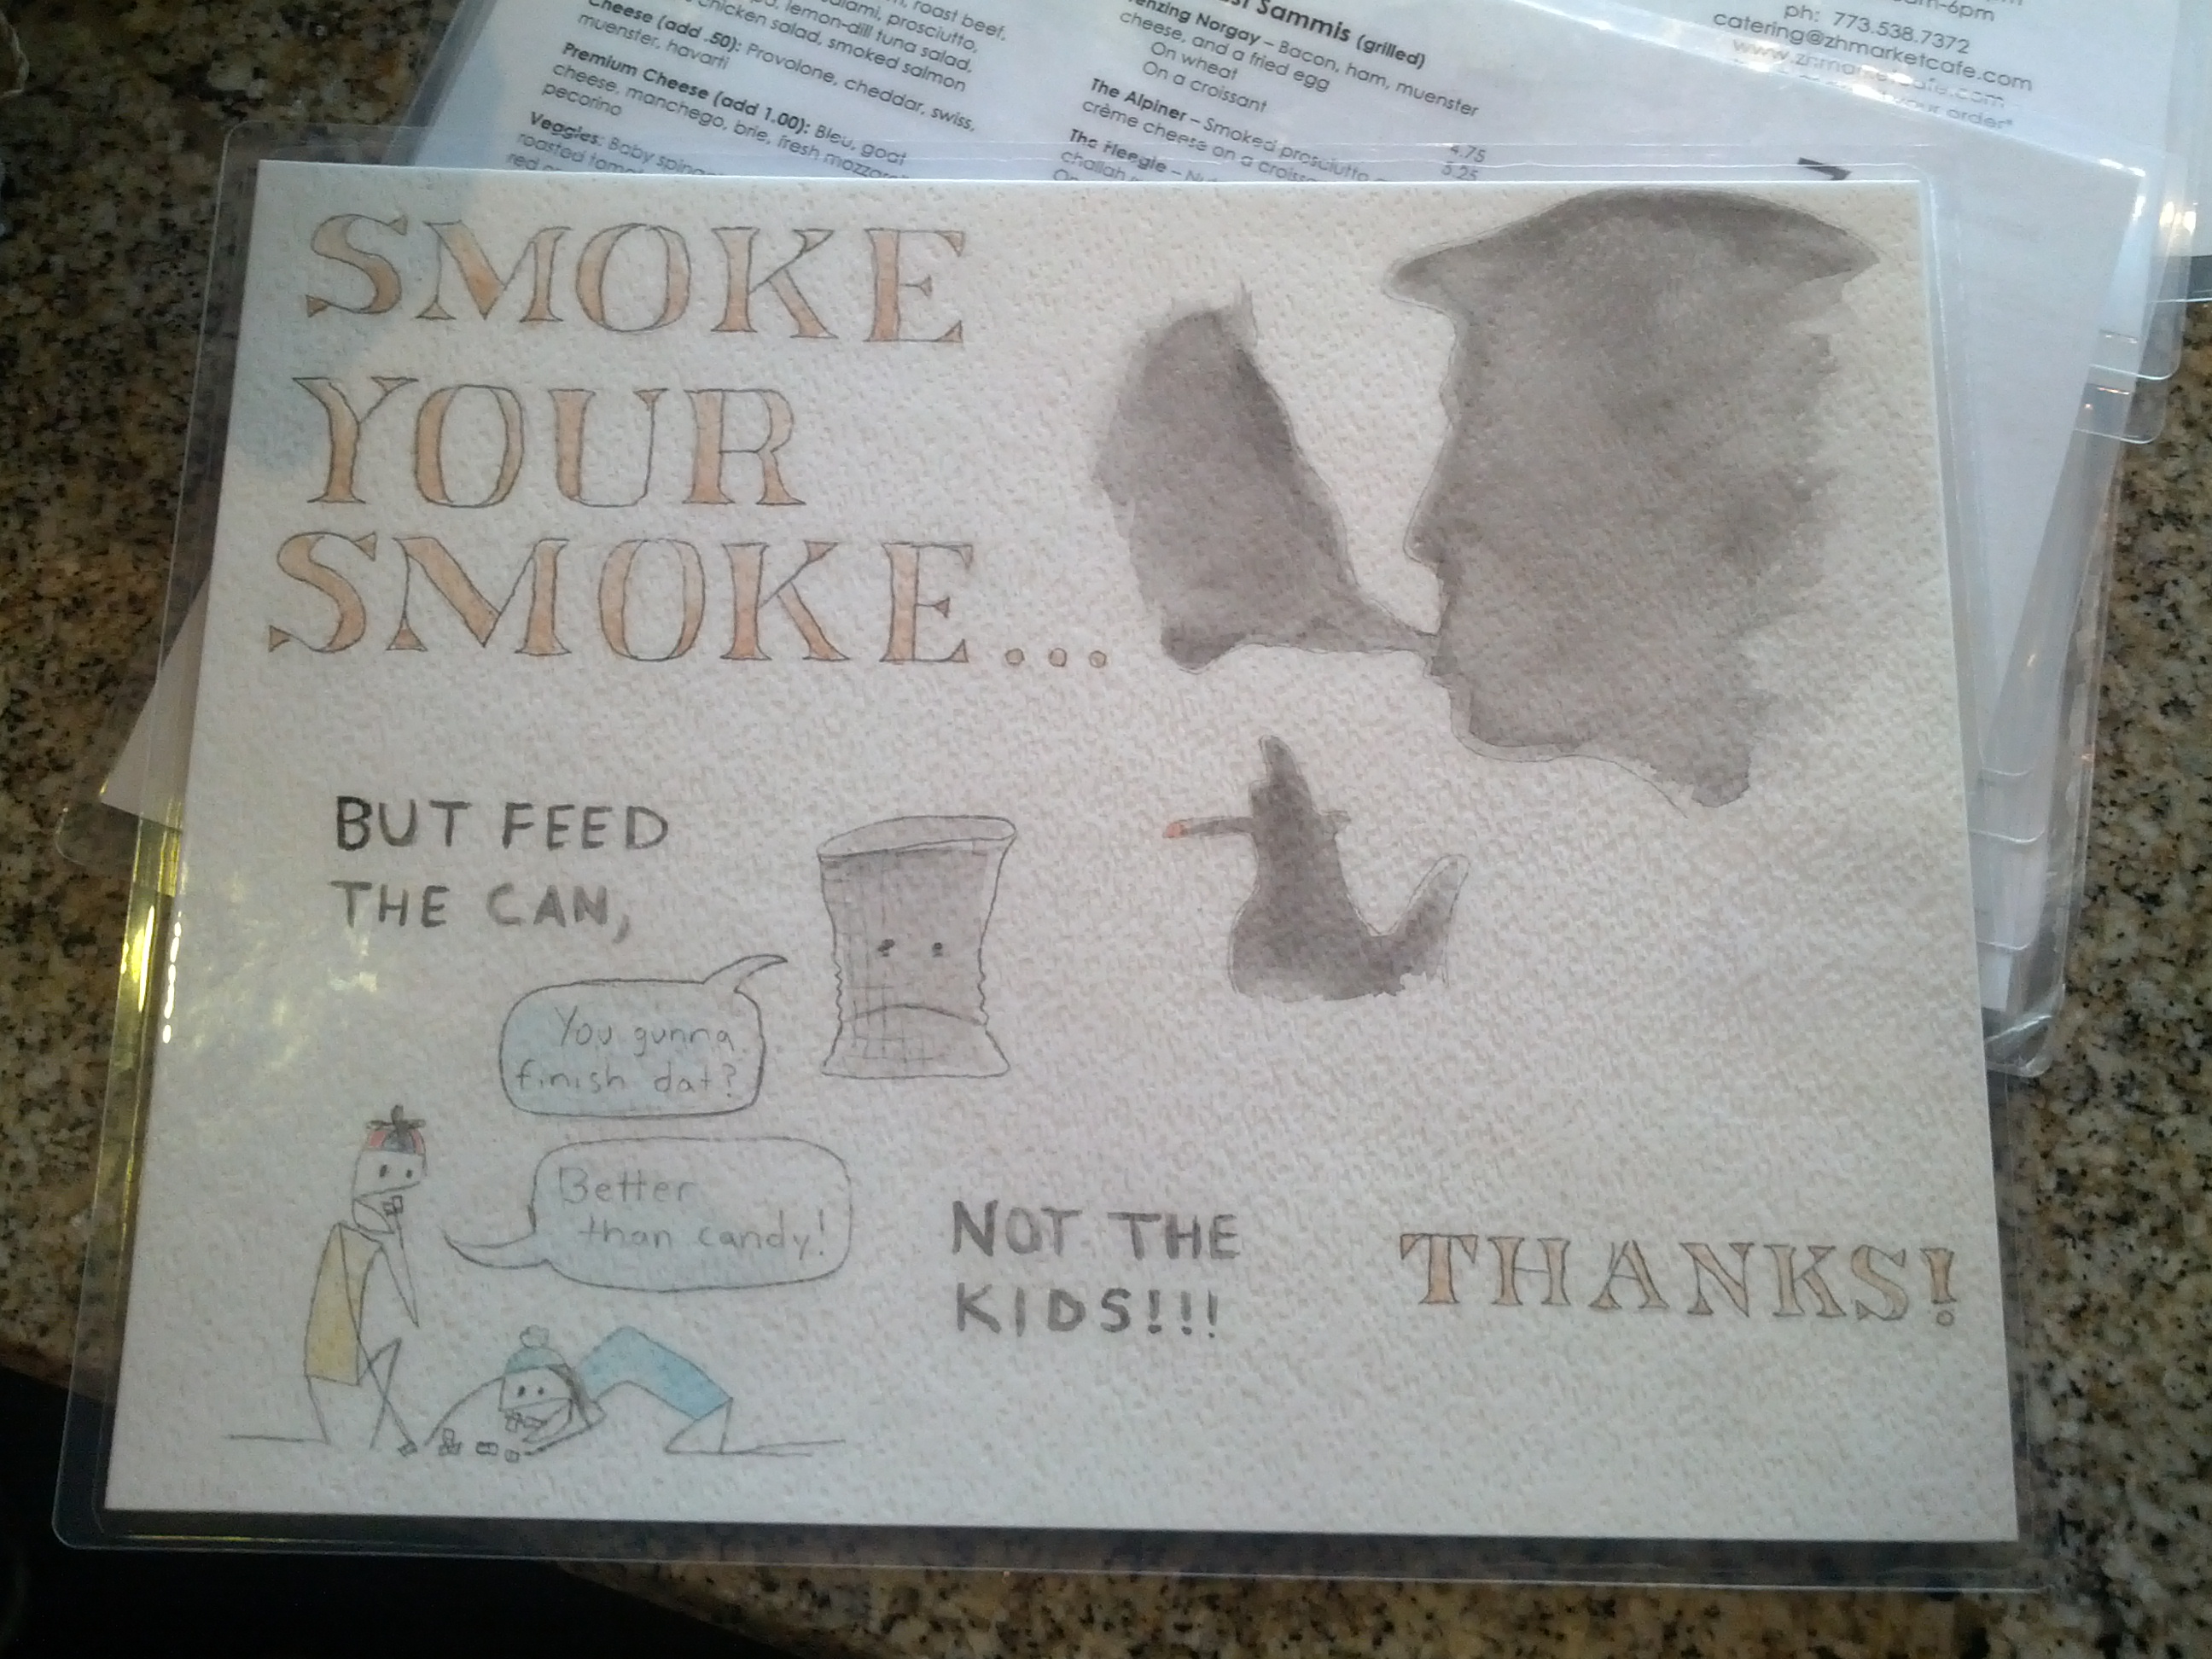 roast beef,
salami, prosciutto,
lemon-dill tuna salad,
chicken salad, smoked salmon
Cheese (add .50): Provolone, cheddar, swiss,
muenster, havarti
Premium Cheese (add 1.00): Bleu, goat
cheese, manchego, brie, fresh
pecorino
Veggies: Baby
roasted
red
Sammis (grilled)
Norgay – Bacon, ham, muenster
cheese, and a fried egg
On wheat
On a croissant
4.75
5.25
The Alpiner – Smoked prosciutto
crème cheese on a
The Heegle –
challah
ph: 773.538.7372
catering@zhmarketcafe.com
www.zhmarketcafe.com
your order*
SMOKE
YOUR
SMOKE...
BUT FEED
THE CAN,
You gunna
finish dat?
Better
than candy!
NOT THE
KIDS!!!
THANKS!